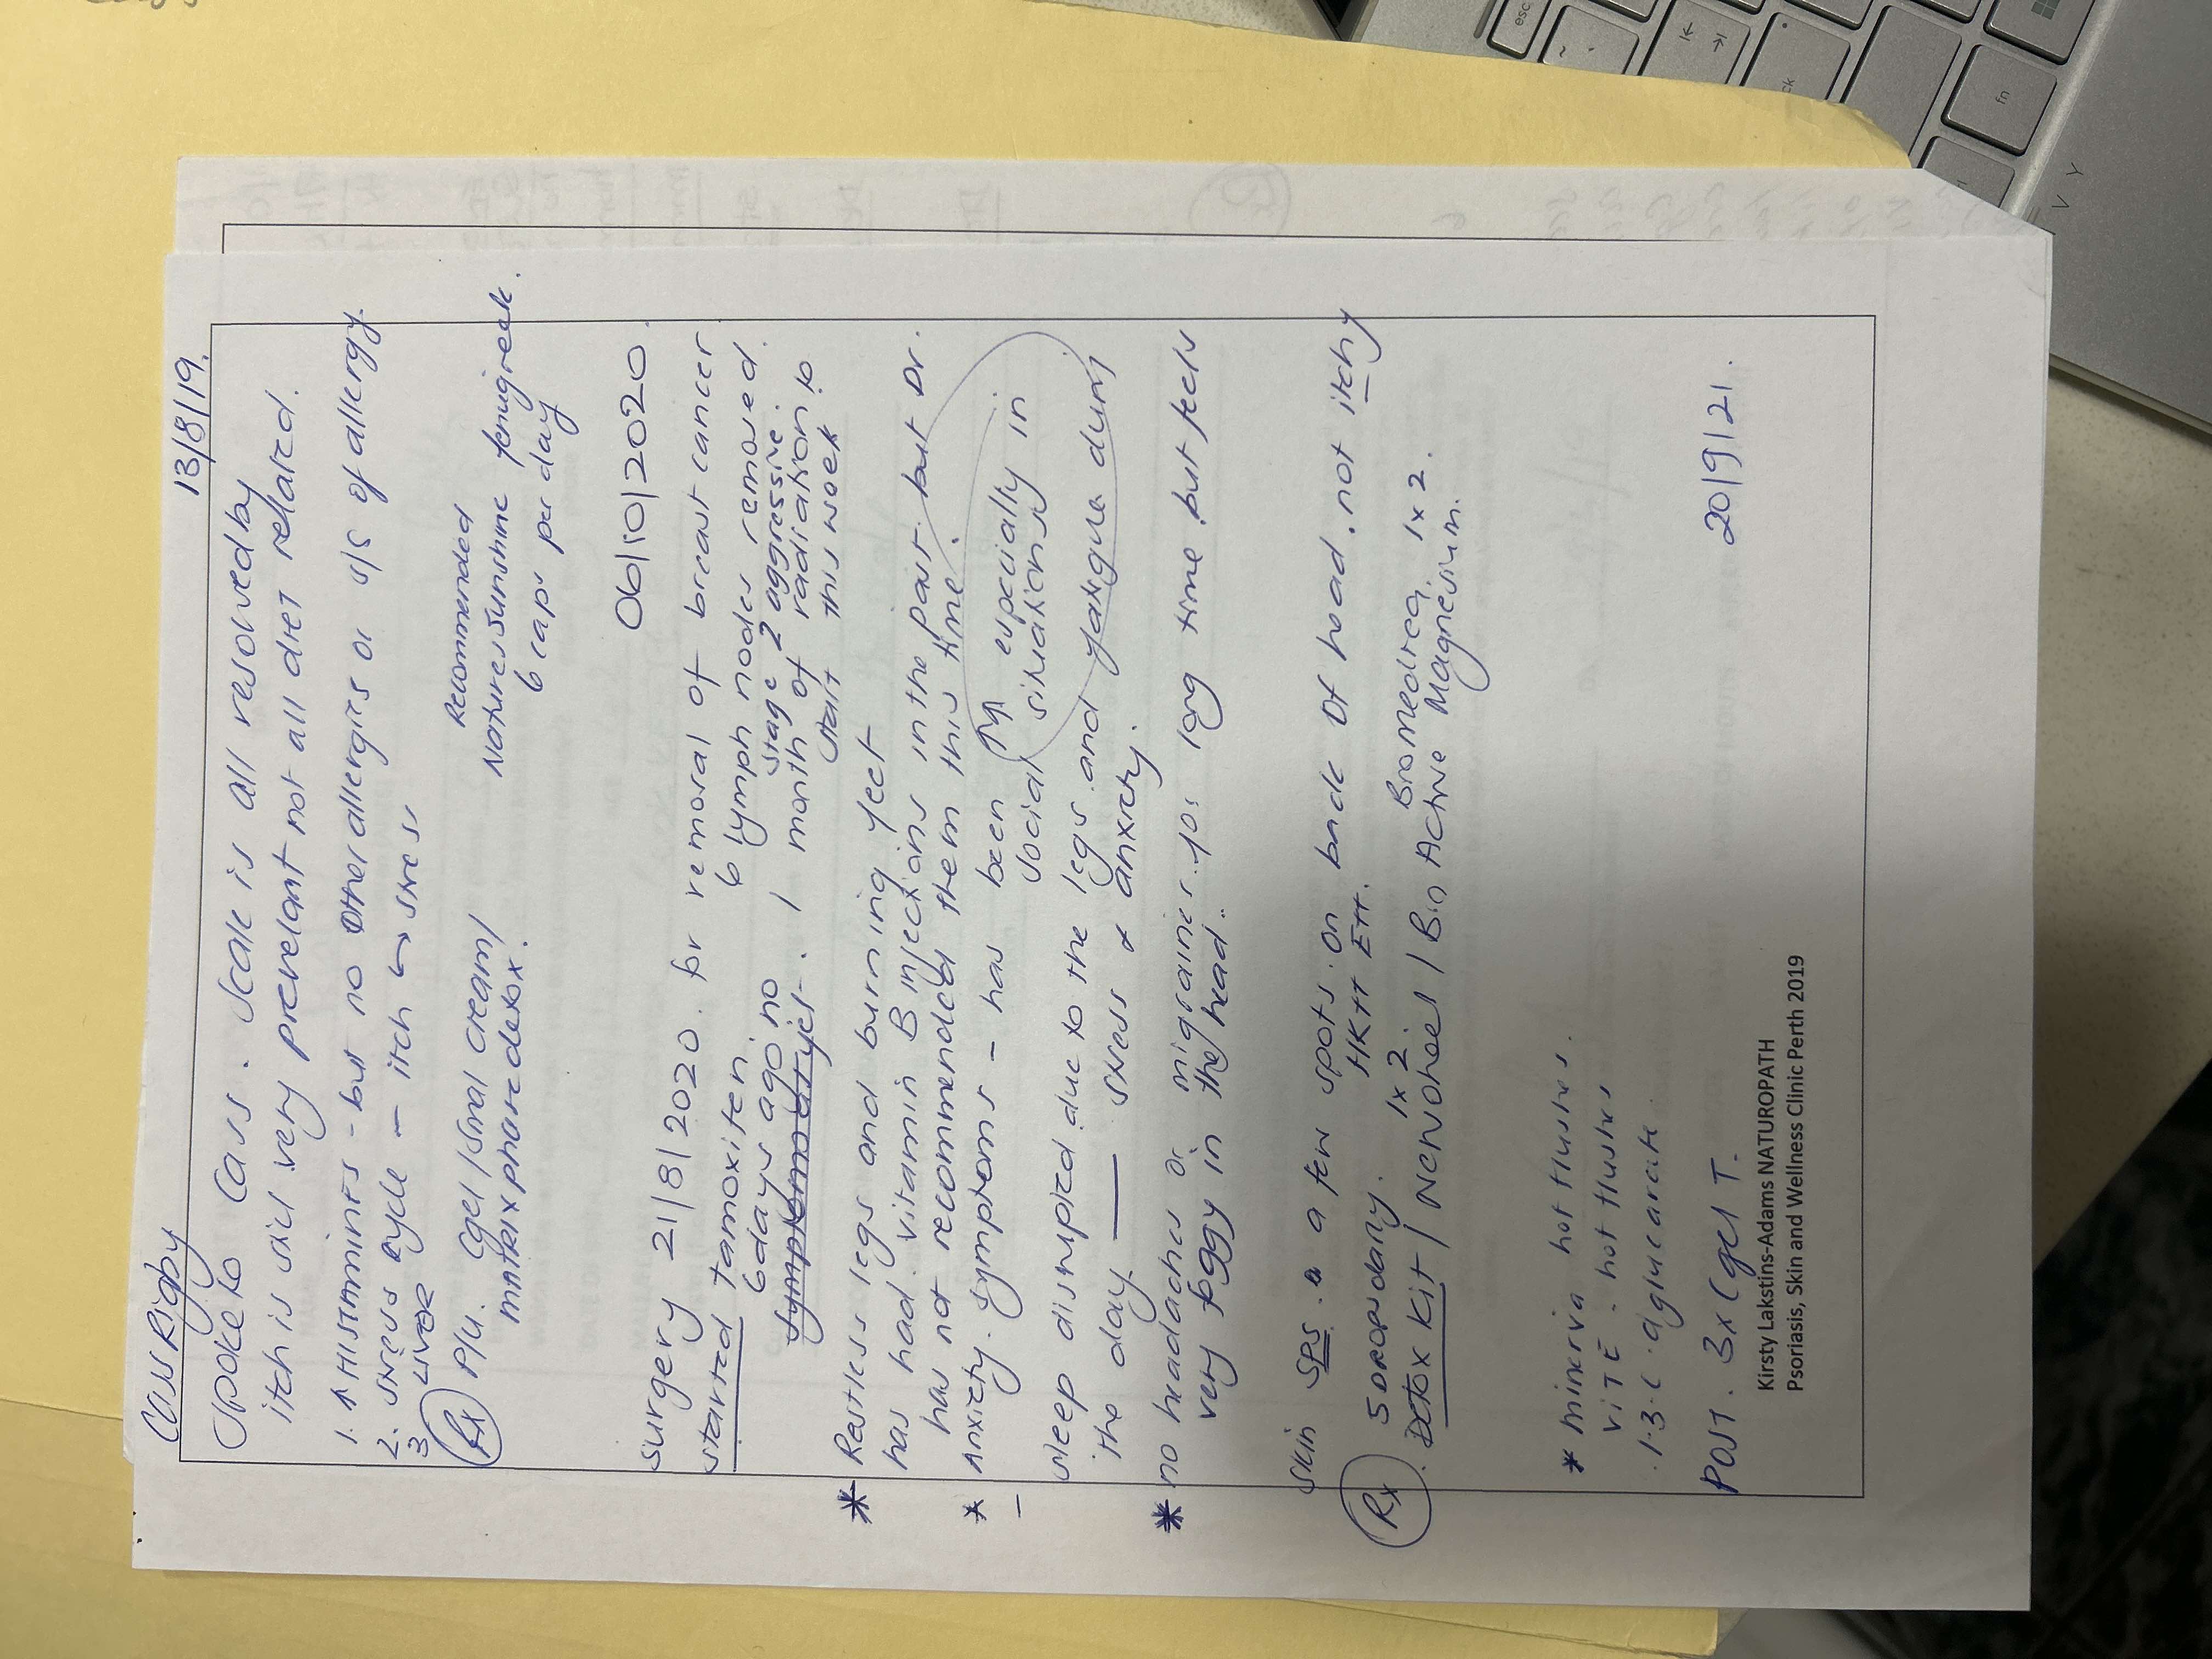 Cass Rigby 13/8/19.
Spoke to Cass. Scale is all resolved by
itch is still very prevelant not all diet related.
1. ↑ HISTAMINES - but no other allergies or s/s of allergy
2. Stress cycle - itch ↪ stress
3 LIVER
Recommended
Rx P/U. Cgel / Smal cream / Natures Sunshine fenugreek.
matrix phase detox. 6 caps per day
06/10/2020.
Surgery 21/8/2020. for removal of breast cancer
started tamoxifen. 6 lymph nodes removed.
6 days ago no stage 2 aggressive.
symptoms yet. 1 month of radiation to
start this week
* Restless legs and burning feet
has had vitamin B injections in the past. but Dr.
has not recommended them this time.
* Anxiety. symptoms - has been especially in
- social situations
sleep disrupted due to the legs and fatigue during
the day — stress & anxiety.
* no headaches or migraines for long time but feels
very foggy in the head.
Skin SPS. a few spots on back of head. not itchy
HKtt Ett.
Rx 5 DROPS daily. 1x2. Biomedica 1x2.
Detox Kit / Nervoheel / Bio Active Magnesium.
* minerva hot flushes.
VIT E. hot flushes
1-3-C. dglucarate.
POST. 3x Cgel T. 20/9/21.
Kirsty Lakstins-Adams NATUROPATH
Psoriasis, Skin and Wellness Clinic Perth 2019
esc
fn